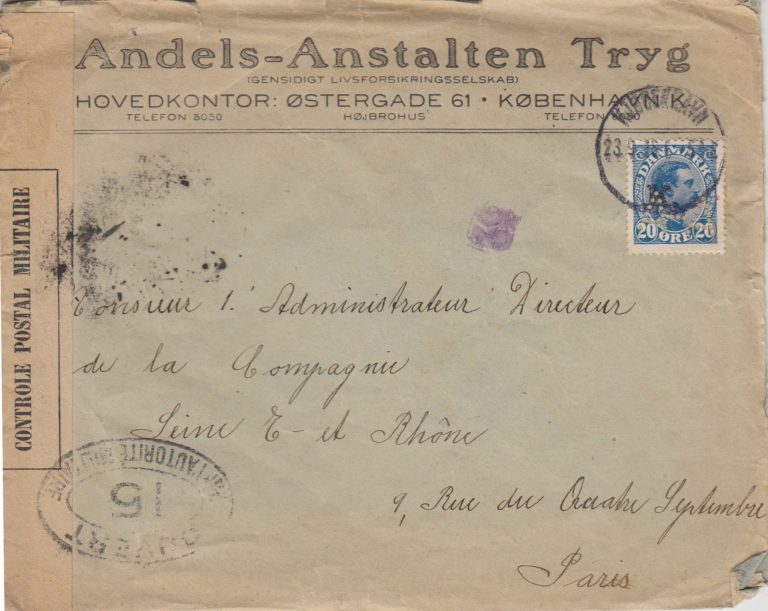 Andels-Anstalten Tryg
(GENSIDIGT LIVSFORSIKRINGSSELSKAB)
HOVEDKONTOR: ØSTERGADE 61 • KØBENHAVN K.
TELEFON 8050 HØJBROHUS TELEFON
KJØBENHAVN
23.9.
DANMARK
20 ØRE 20
CONTROLE POSTAL MILITAIRE
Monsieur l'Administrateur Directeur
de la Compagnie
Seine E- et Rhône
9, Rue du Quatre Septembre
Paris
OUVERT
PAR L'AUTORITÉ MILITAIRE
15